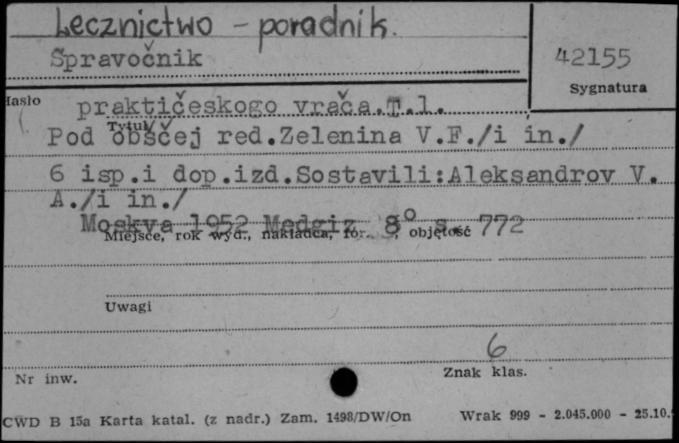 Lecznictwo - poradnik.
Spravočnik
42155
Sygnatura
Hasło
praktičeskogo vrača.T.1.
Tytuł
Pod obščej red.Zelenina V.F./i in./
6 isp.i dop.izd.Sostavili:Aleksandrov V.
A./i in./
Moskva 1952 Medgiz 8° s. 772
Miejsce, rok wyd., nakładca, for. , objętość
Uwagi
6
Nr inw.
Znak klas.
CWD B 15a Karta katal. (z nadr.) Zam. 1498/DW/On
Wrak 999 - 2.045.000 - 25.10.